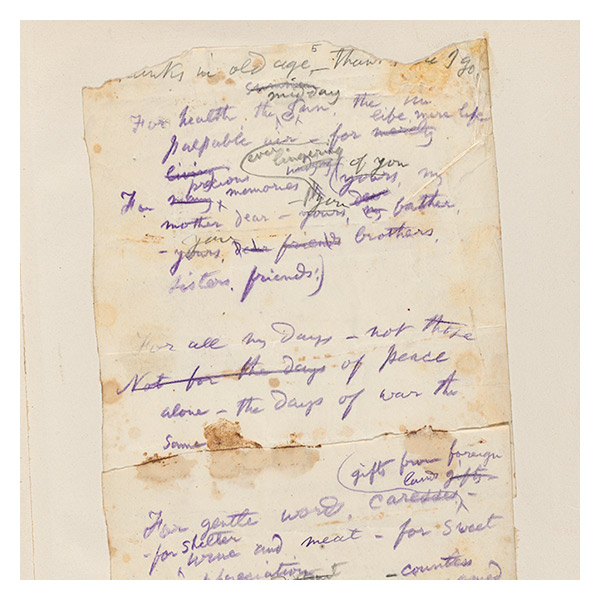 Thanks in old age, — thanks ere I go,
midday
For health, the sun, the
life, mere life
palpable air — for merely
living
ever lingering of you
precious memories yours, my
For many
you dear
mother dear — yours, my father,
your
— yours, dear friends brothers,
sisters, friends,)
For all my days — not those
Not for the days of peace
alone — the days of war the
same
gifts from foreign
lands gifts
For gentle words, caresses,
— for shelter
wine and meat — for sweet
appreciation
— countless